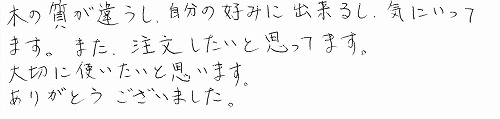 木の質が違うし、自分の好みに出来るし、気にいって
ます。また、注文したいと思ってます。
大切に使いたいと思います。
ありがとうございました。